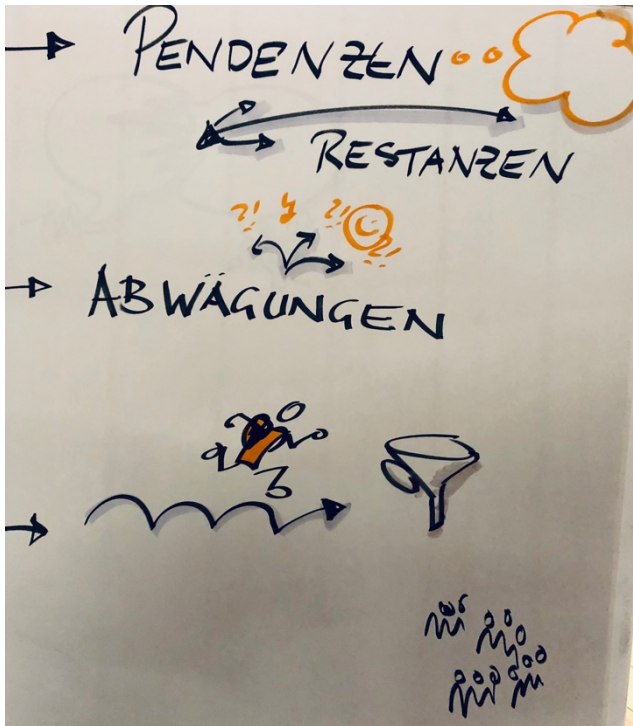 PENDENZEN
RESTANZEN
?! ?! ?!
ABWÄGUNGEN